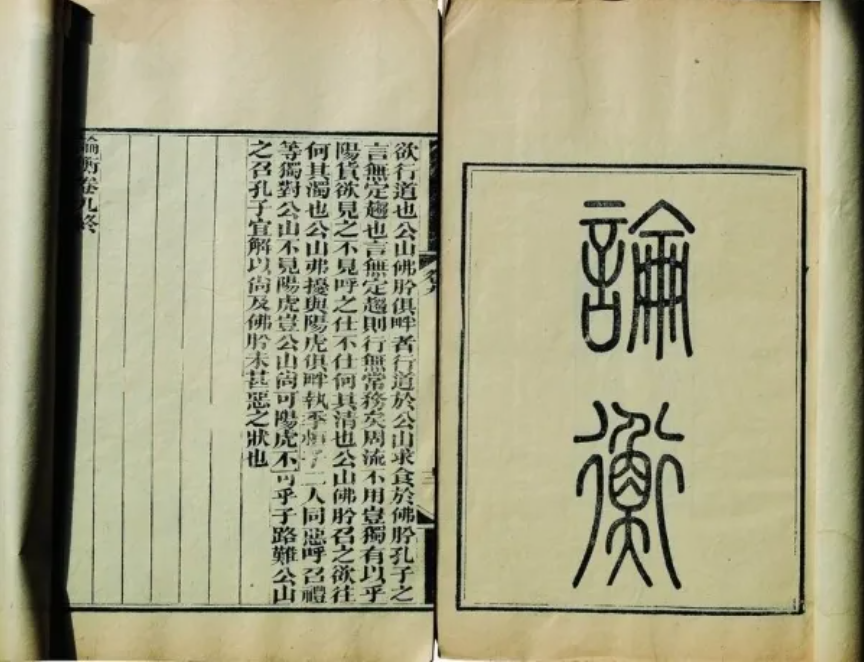 論衡
卷九
欲行道也公山佛肸俱畔者行道於公山求食於佛肸孔子之
言無定趨也言無定趨則行無常務矣周流不用豈獨有以乎
陽貨欲見之不見呼之仕不仕何其清也公山佛肸召之欲往
何其濁也公山弗擾與陽虎俱畔執季桓子二人同惡呼召禮
等獨對公山不見陽虎豈公山尚可陽虎不可乎子路難公山
之召孔子宜解以尚及佛肸未甚惡之狀也
論衡卷九終